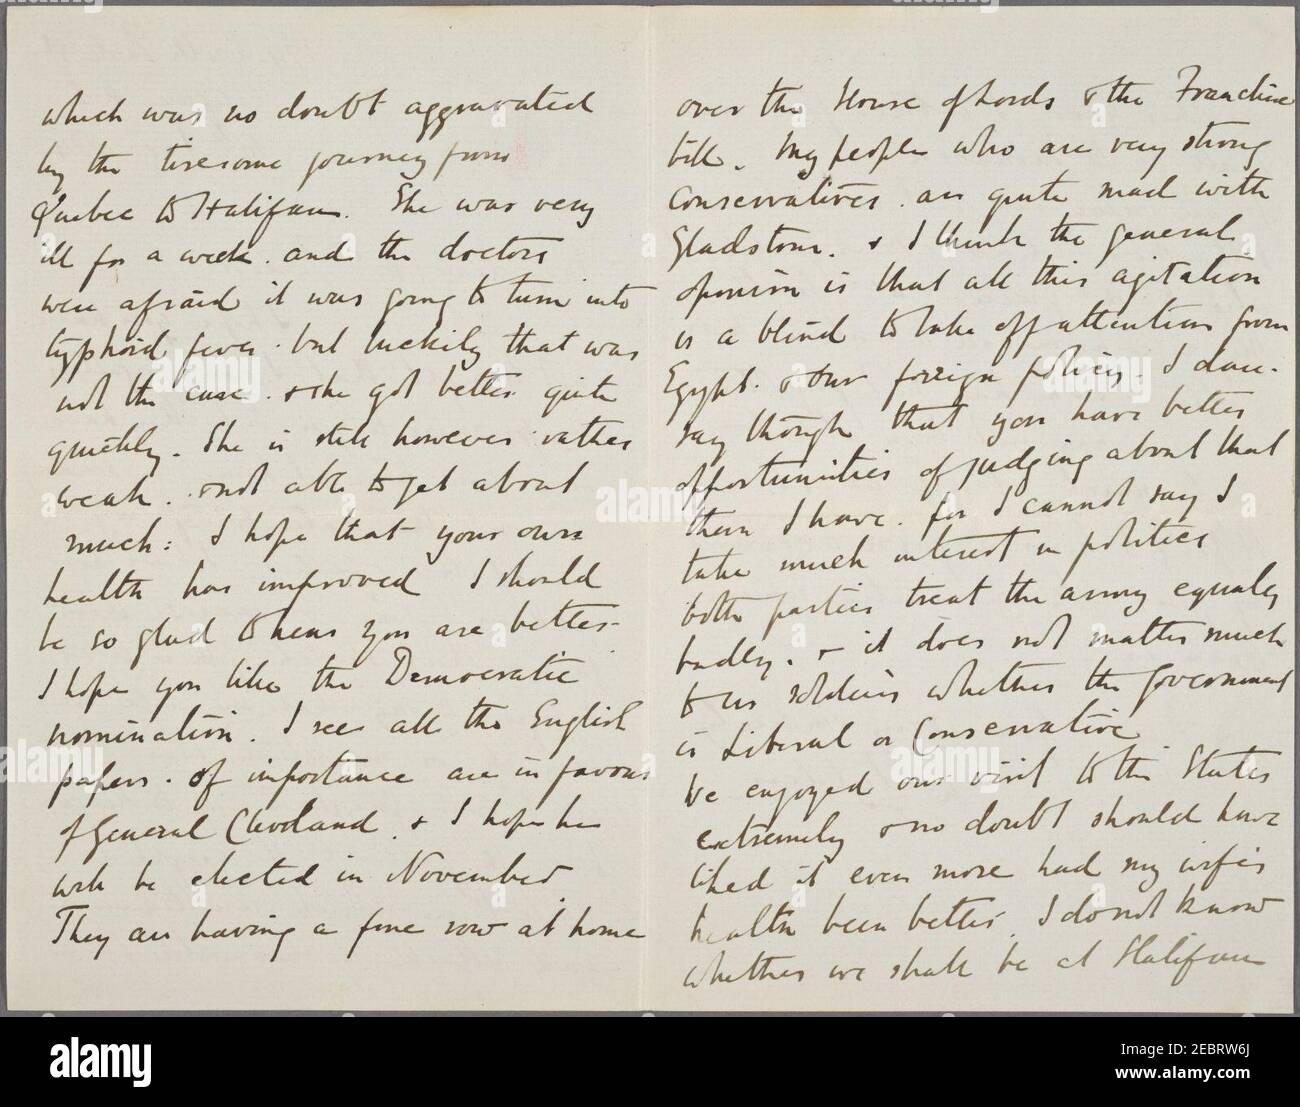 which was no doubt aggravated
by the tiresome journey from
Quebec to Halifax. She was very
ill for a week. and the doctors
were afraid it was going to turn into
typhoid fever. but luckily that was
not the case. & she got better quite
quickly. She is still however rather
weak. & not able to get about
much: I hope that your own
health has improved I should
be so glad to hear you are better.
I hope you like the Democratic
nomination. I see all the English
papers. of importance are in favour
of General Cleveland. & I hope he
will be elected in November.
They are having a fine row at home
over the House of Lords & the Franchise
bill. My people who are very strong
Conservatives. are quite mad with
Gladstone. & I think the general
opinion is that all this agitation
is a blind to take off attention from
Egypt. & our foreign policy. I dare-
say though that you have better
opportunities of judging about that
than I have. for I cannot say I
take much interest in politics
both parties treat the army equally
badly. & it does not matter much
to us soldiers whether the Government
is Liberal or Conservative
We enjoyed our visit to the States
extremely & no doubt should have
liked it even more had my wife's
health been better. I do not know
whether we shall be at Halifax
alamy
Image ID: 2EBRW6J
www.alamy.com